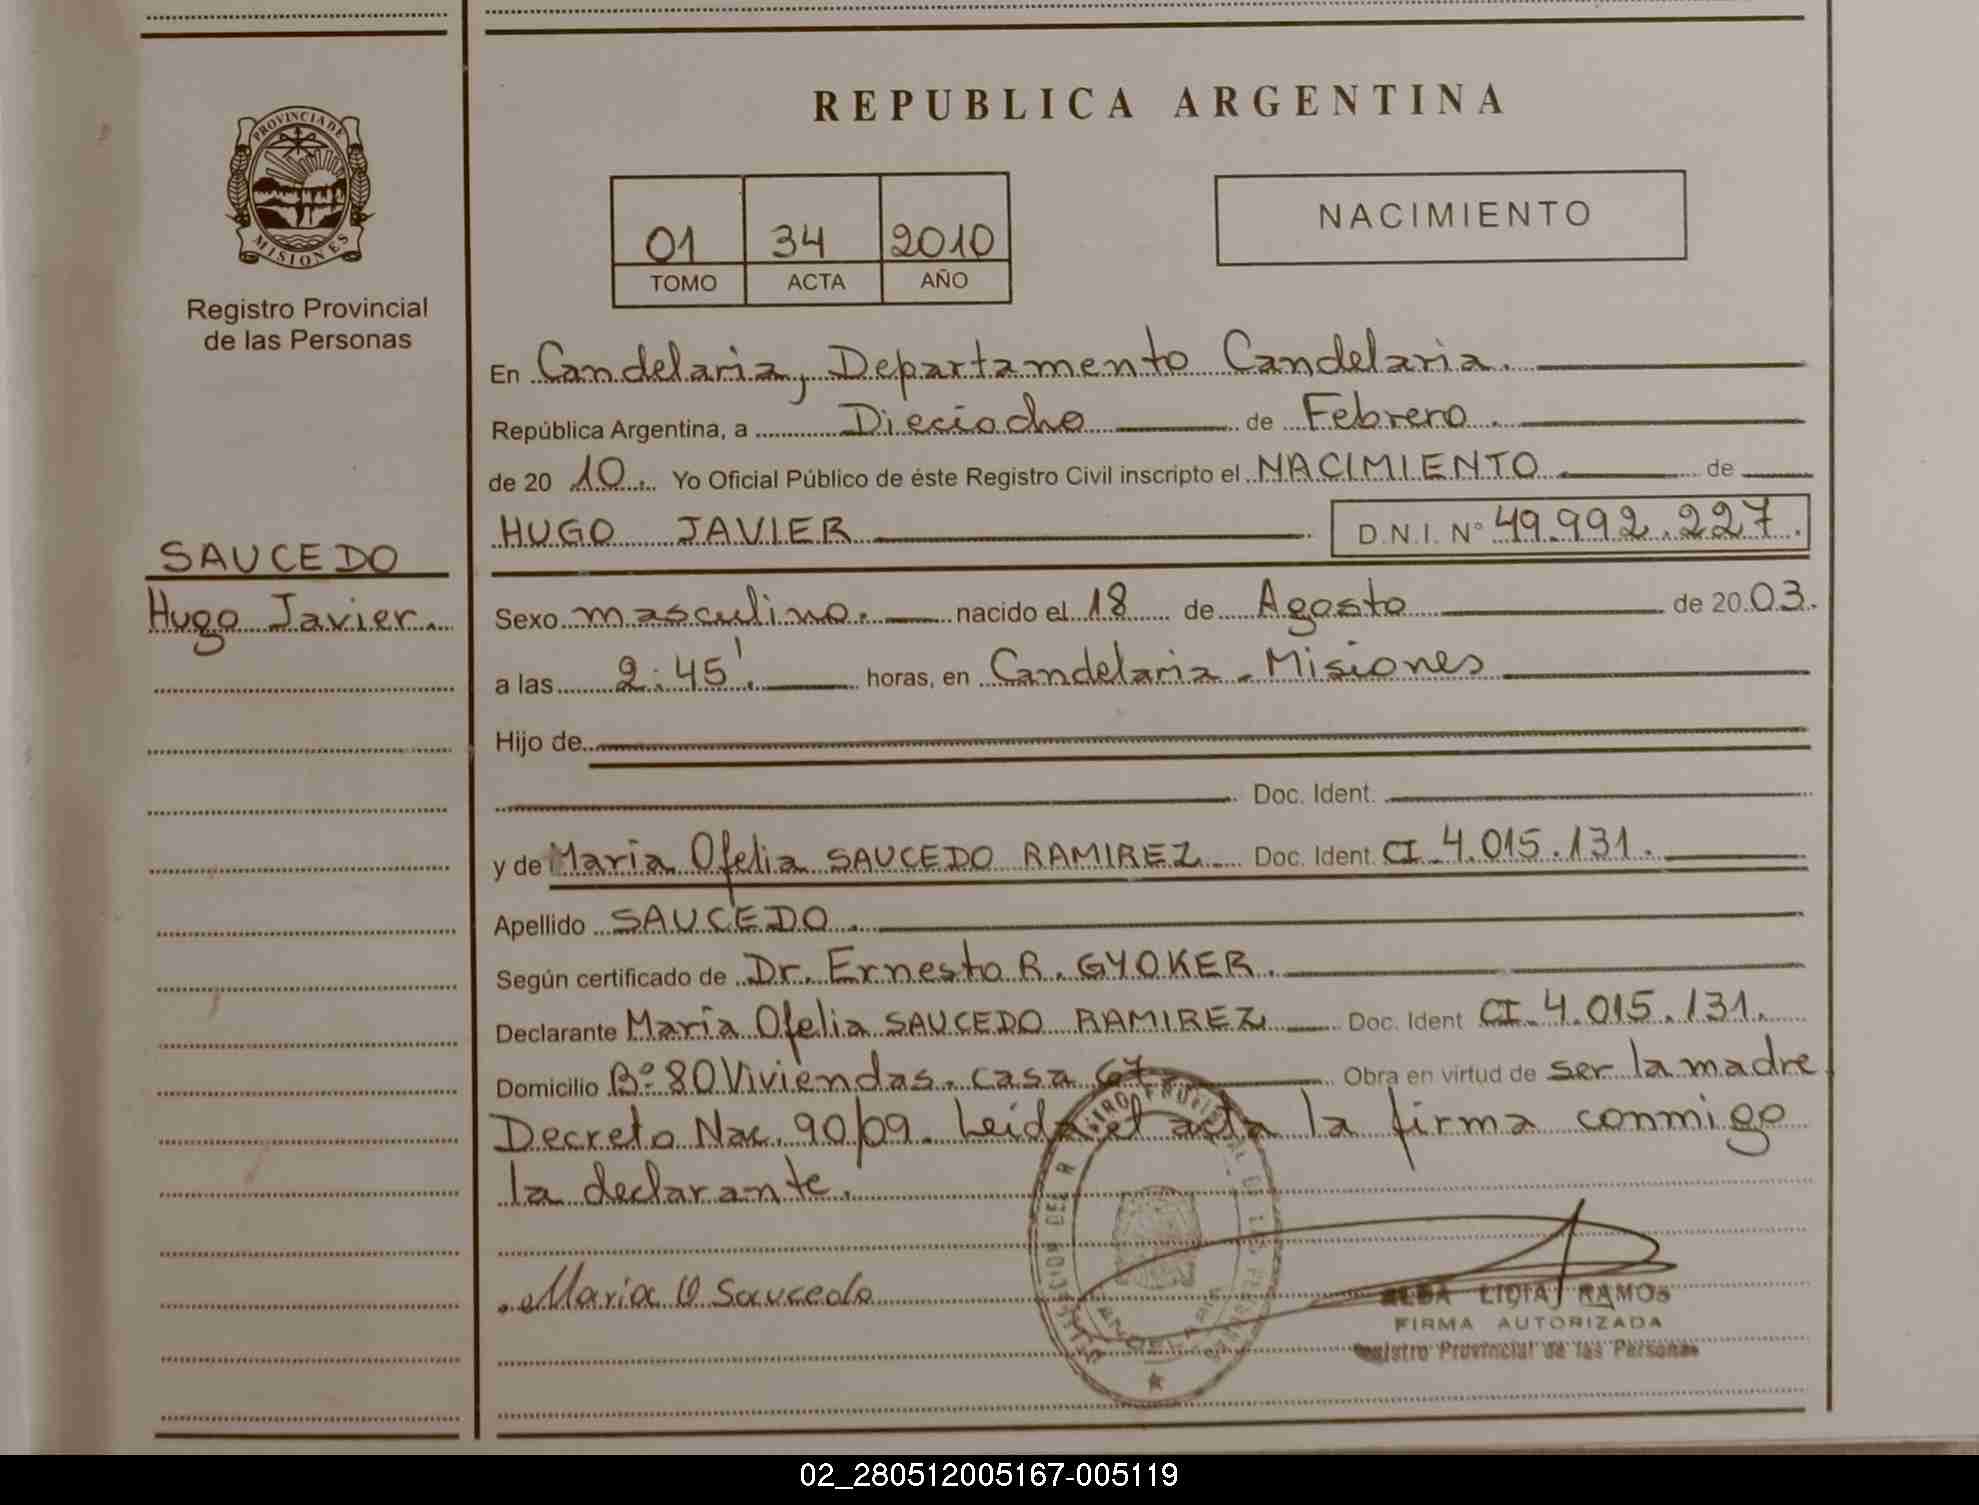 REPUBLICA ARGENTINA
PROVINCIA DE
MISIONES
Registro Provincial
de las Personas
01 34 2010
TOMO ACTA AÑO
NACIMIENTO
SAUCEDO
Hugo Javier.
En Candelaria, Departamento Candelaria.
República Argentina, a Dieciocho de Febrero.
de 20 10. Yo Oficial Público de éste Registro Civil inscripto el NACIMIENTO de
HUGO JAVIER D.N.I. Nº 49.992.227.
Sexo masculino. nacido el 18 de Agosto de 20 03.
a las 2:45'. horas, en Candelaria - Misiones
Hijo de
Doc. Ident.
y de Maria Ofelia SAUCEDO RAMIREZ Doc. Ident. CI. 4.015.131.
Apellido SAUCEDO.
Según certificado de Dr. Ernesto R. GYOKER.
Declarante Maria Ofelia SAUCEDO RAMIREZ Doc. Ident CI. 4.015.131.
Domicilio Bº 80 Viviendas. casa 67 Obra en virtud de ser la madre
Decreto Nac. 90/09. Leida el acta la firma conmigo
la declarante.
Maria O Saucedo
ALBA LIDIA RAMOS
FIRMA AUTORIZADA
Registro Provincial de las Personas
02_280512005167-005119